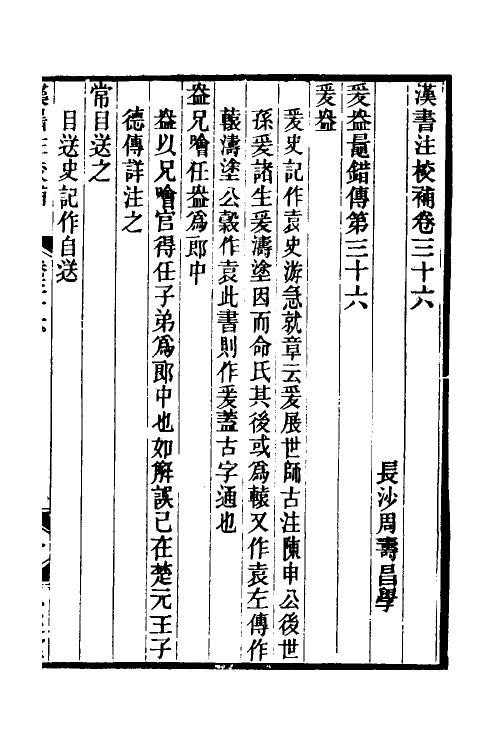 漢書注校補卷三十六
長沙周壽昌學
爰盎鼂錯傳第三十六
爰盎
爰史記作袁史游急就章云爰展世師古注陳申公後世
孫爰諸生爰濤塗因而命氏其後或爲轅又作袁左傳作
轅濤塗公穀作袁此書則作爰蓋古字通也
盎兄噲任盎爲郎中
盎以兄噲官得任子弟爲郎中也如解誤已在楚元王子
德傳詳注之
常目送之
目送史記作自送